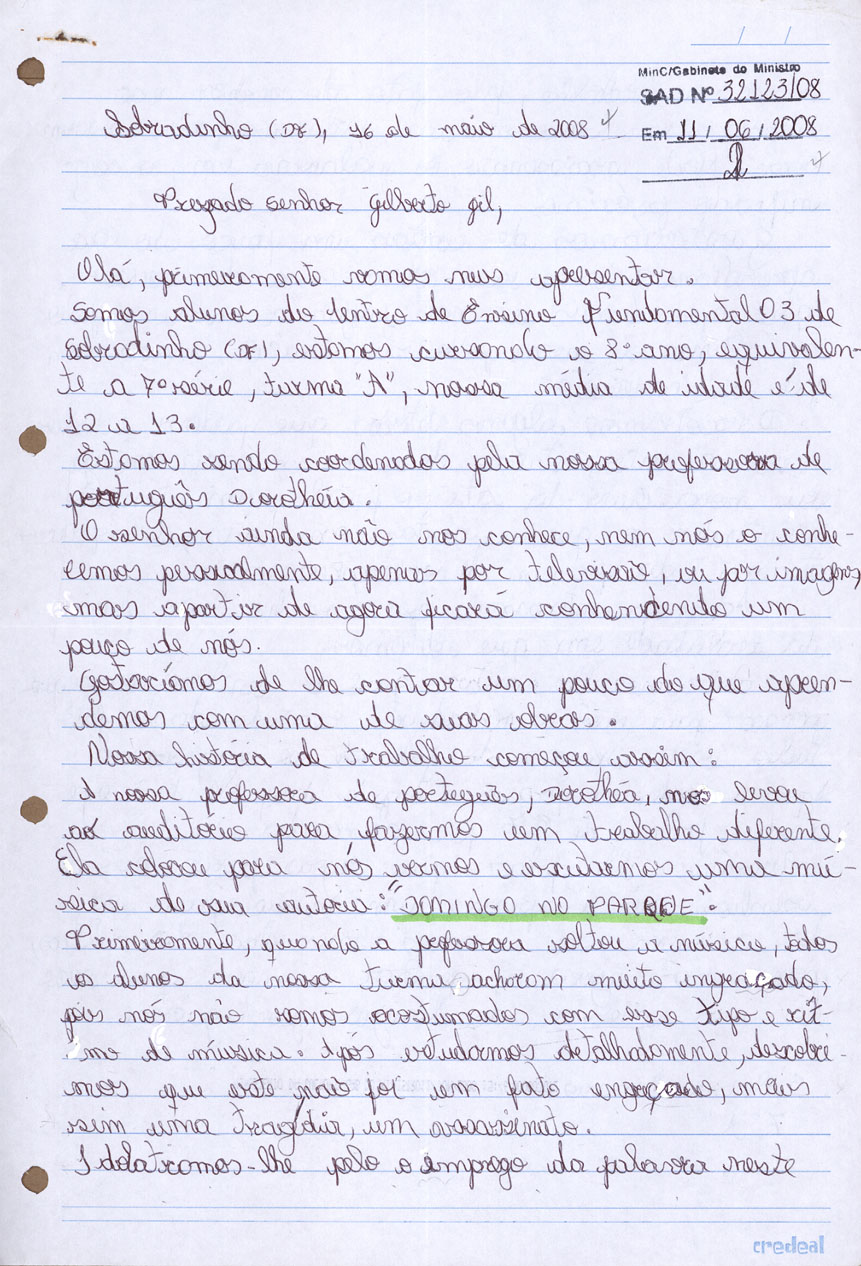 MinC/Gabinete do Ministro
SAD Nº 32123/08
Em 11/06/2008
Sobradinho (DF), 16 de maio de 2008
Prezado senhor Gilberto Gil,
Olá, primeiramente vamos nus apresentar.
Somos alunos do Centro de Ensino Fundamental 03 de
Sobradinho (DF), estamos cursando o 8º ano, equivalen-
te a 7º série, turma "A", nossa média de idade é de
12 a 13.
Estamos sendo coordenados pela nossa professora de
português Dorothéia.
O senhor ainda não nos conhece, nem nós o conhe-
cemos pessoalmente, apenas por televisão, ou por imagens,
mas apartir de agora ficará conhecendo um
pouço de nós.
Gostaríamos de lhe contar um pouço do que apren-
demos com uma de suas obras.
Nossa história de trabalho começou assim:
A nossa professora de português, Dorothéa, nos levou
ao auditório para fazermos um trabalho diferente.
Ela colocou para nós vermos e escutarmos uma mú-
sica de sua autoria: "DOMINGO NO PARQUE".
Primeiramente, quando a professora soltou a música, todos
os alunos da nossa turma acharam muito ingraçado,
pois nós não somos acostumados com esse tipo e rit-
mo de música. Após estudarmos detalhadamente, descobri-
mos que este não foi um fato engraçado, mais
sim uma tragédia, um assassinato.
Idolatramos-lhe pelo o emprego da palavra neste
credeal